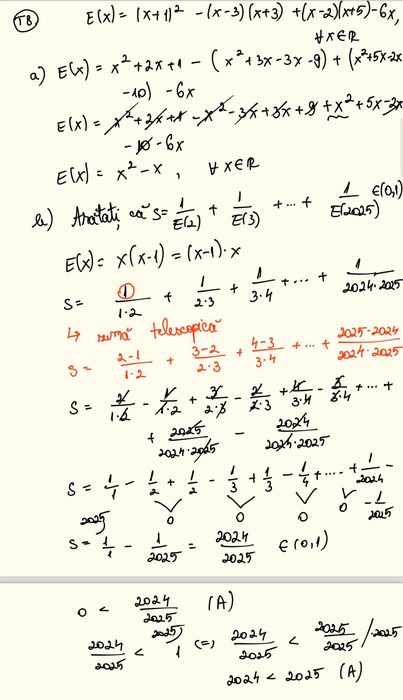 T8 E(x) = (x+1)² - (x-3)(x+3) + (x-2)(x+5) - 6x,
∀ x∈ℝ
a) E(x) = x² + 2x + 1 - (x² + 3x - 3x - 9) + (x² + 5x - 2x
-10) - 6x
E(x) = x² + 2x + 1 - x² - 3x + 3x + 9 + x² + 5x - 2x
- 10 - 6x
E(x) = x² - x , ∀ x∈ℝ
b) Arătați că S = 1/E(2) + 1/E(3) + ... + 1/E(2025) ∈(0,1)
E(x) = x(x-1) = (x-1)·x
S = 1/1·2 + 1/2·3 + 1/3·4 + ... + 1/2024·2025
↳ sumă telescopică
S = 2-1/1·2 + 3-2/2·3 + 4-3/3·4 + ... + 2025-2024/2024·2025
S = 2/1·2 - 1/1·2 + 3/2·3 - 2/2·3 + 4/3·4 - 3/3·4 + ... +
+ 2025/2024·2025 - 2024/2024·2025
S = 1/1 - 1/2 + 1/2 - 1/3 + 1/3 - 1/4 + ... + 1/2024 -
0 0 0 0 - 1/2025
S = 2025) 1/1 - 1/2025 = 2024/2025 ∈ (0,1)
0 < 2024/2025 (A)
2024/2025 < 2025) 1 (=) 2024/2025 < 2025/2025 /·2025
2024 < 2025 (A)